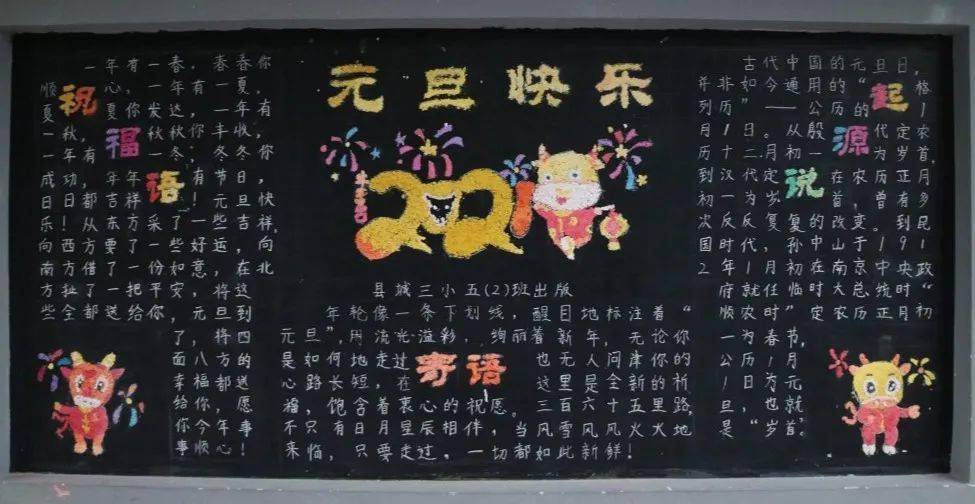 元旦快乐
2021
祝福语
一年有一春,春春你
顺心,一年有一夏,
夏夏你发达,一年有
一秋,秋秋你丰收,
一年有一冬,冬冬你
成功,年年有节日,
日日都吉祥!元旦快
乐!从东方采了一些吉祥,
向西方要了一些好运,向
南方借了一份如意,在北
方扯了一把平安,将这
些全都送给你,元旦到
了,将四
面八方的
幸福都送
给你,愿
你今年事
事顺心!
县城三小五(2)班出版
寄语
年轮像一条下划线,醒目地标注着“
元旦”,用流光溢彩,绚丽着新年,无论你
是如何地走过也无人问津你的
心路长短,在这里是全新的祈
福,饱含着衷心的祝愿。三百六十五里路,
不只有日月星辰相伴,当风雪风火大地
来临,只要走过,一切都如此新鲜!
起源说
古代中国的元旦日,
并非如今通用的“格
列历”——公历的1
月1日。从殷代定农
历十二月初一为岁首,
到汉代定在农历正月
初一为岁首,曾有多
次反复,改变到民
国时,孙中山于191
2年1月初在南京中央政
府就任临时大总统时
顺农时”定历正月“初
一为春节,
公历1月
1日为元
旦,也就
是“岁首”。